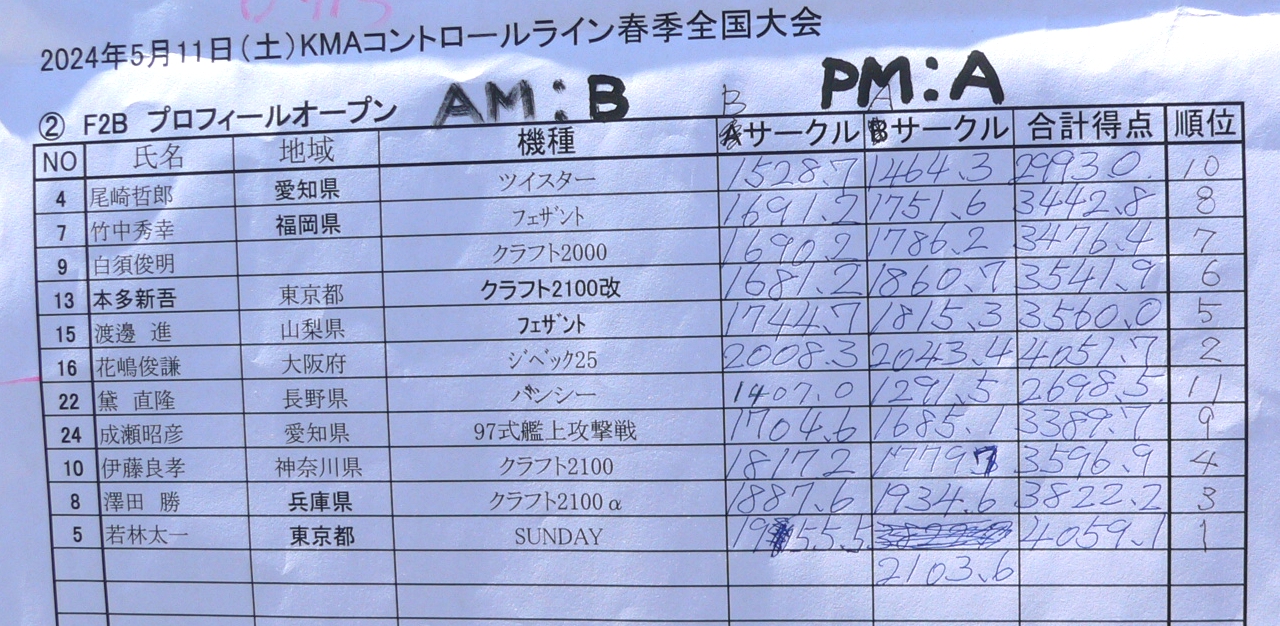 2024年5月11日(土)KMAコントロールライン春季全国大会
② F2B プロフィールオープン AM:B PM:A
B A
NO 氏名 地域 機種 Aサークル Bサークル 合計得点 順位
4 尾崎哲郎 愛知県 ツイスター 1528.7 1464.3 2993.0 10
7 竹中秀幸 福岡県 フェザント 1691.2 1751.6 3442.8 8
9 白須俊明 クラフト2000 1690.2 1786.2 3476.4 7
13 本多新吾 東京都 クラフト2100改 1681.2 1860.7 3541.9 6
15 渡邊 進 山梨県 フェザント 1744.7 1815.3 3560.0 5
16 花嶋俊謙 大阪府 ジベック25 2008.3 2043.4 4051.7 2
22 黛 直隆 長野県 バンシー 1407.0 1291.5 2698.5 11
24 成瀬昭彦 愛知県 97式艦上攻撃戦 1704.6 1685.1 3389.7 9
10 伊藤良孝 神奈川県 クラフト2100 1817.2 1779.7 3596.9 4
8 澤田 勝 兵庫県 クラフト2100α 1887.6 1934.6 3822.2 3
5 若林太一 東京都 SUNDAY 1955.5 4059.1 1
2103.6